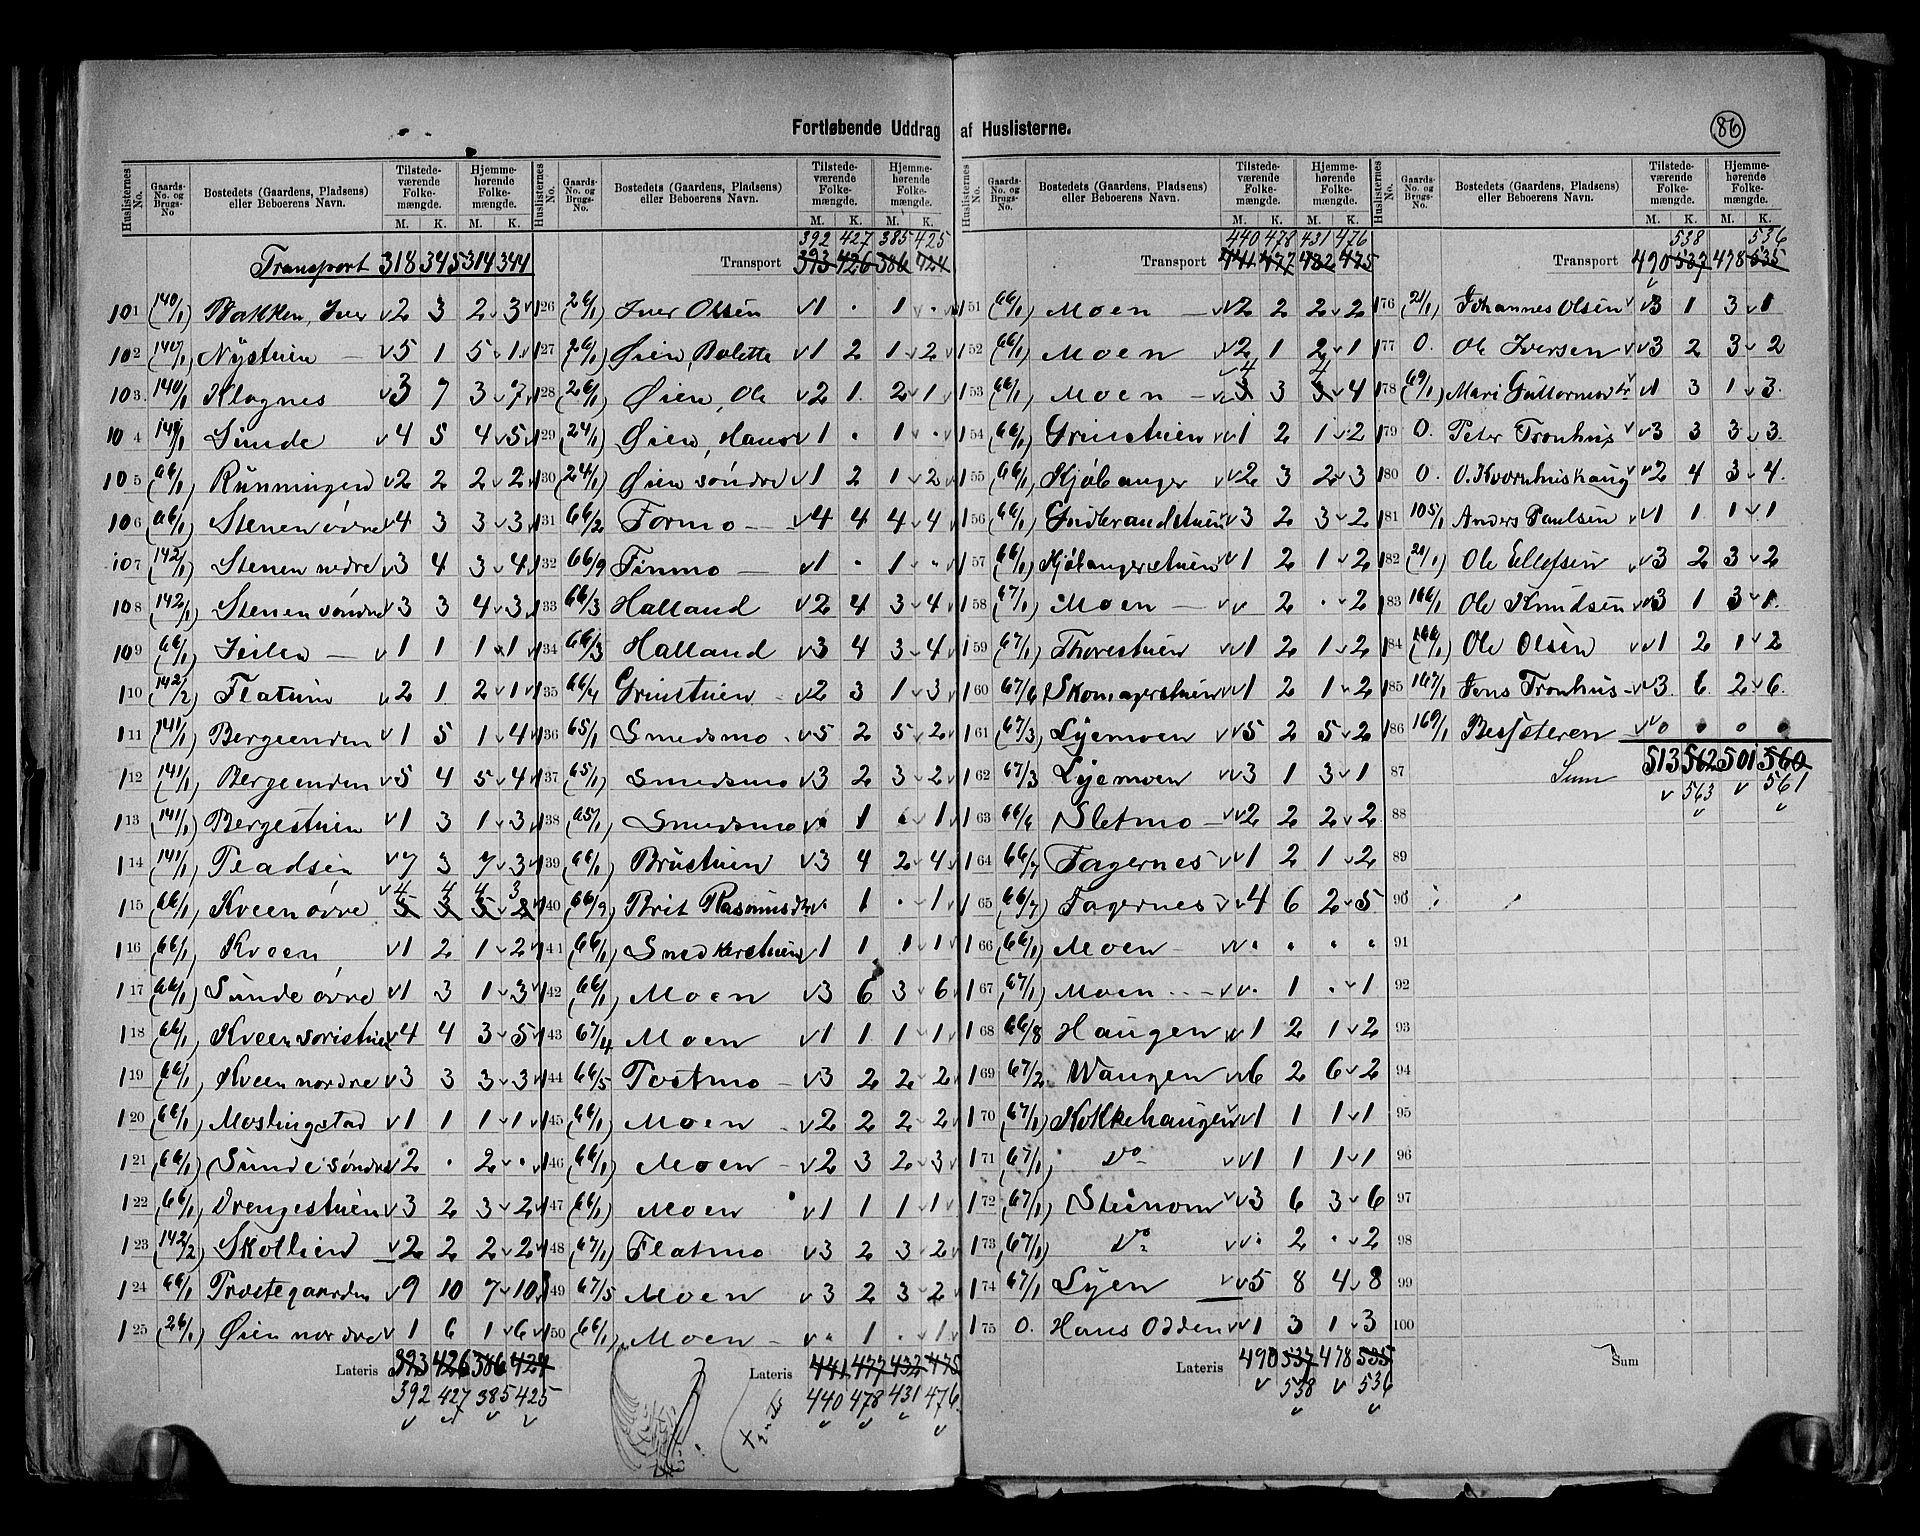 Fortløbende Uddrag af Huslisterne.
86
Huslisternes No. Gaards-No. og Brugs-No Bostedets (Gaardens, Pladsens) eller Beboerens Navn. Tilstedeværende Folkemængde. M. K. Hjemmehørende Folkemængde. M. K.
Transport 318 345 314 344
101 (140/1) Bakken, Iver 2 3 2 3
102 (140/1) Nystuen 5 1 5 1
103 140/1 Klognes 3 7 3 7
104 140/1 Sunde 4 5 4 5
105 (66/1) Runningen 2 2 2 2
106 (66/1) Stenen øvre 4 3 3 3
107 (142/1) Stenen nedre 3 4 3 4
108 (142/1) Stenen søndre 3 3 4 3
109 (66/1) 1 1 1 1
110 (142/2) Flatum 2 1 2 1
111 (141/1) Bergeenden 1 5 1 4
112 (141/1) Bergeenden 5 4 5 4
113 (141/1) Bergestuen 1 3 1 3
114 (141/1) Pladsen 7 3 7 3
115 (66/1) Kveen øvre 4 4 4 3
116 (66/1) Kveen 1 2 1 2
117 (66/1) Sunde øvre 1 3 1 3
118 (66/1) Kveen 4 4 3 5
119 (66/1) Kveen nordre 3 3 3 3
120 (66/1) Moslingstad 1 1 1 1
121 (66/1) Sunde søndre 2 . 2 .
122 66/1) Drengestuen 3 2 3 2
123 (142/2) Skotlien 2 2 2 2
124 66/1 Præstegaarden 9 10 7 10
125 (26/1) Øien nordre 1 6 1 6
Lateris 393 426 386 424
392 427 385 425
Huslisternes No. Gaards-No. og Brugs-No. Bostedets (Gaardens, Pladsens) eller Beboerens Navn. Tilstedeværende Folkemængde. M. K. Hjemmehørende Folkemængde. M. K.
392 427 385 425
Transport 393 426 386 424
126 (26/1) Iver Olsen 1 . 1 .
127 (26/1) Øien, Bolette 1 2 1 2
128 (26/1) Øien, Ole 2 1 2 1
129 (24/1) Øien, Hans 1 . 1 .
130 (24/1) Øien søndre 1 2 1 2
131 66/2 Formo 4 4 4 4
132 66/9 Finmo 1 . 1 .
133 66/3 Halland 2 4 3 4
134 66/3 Halland 3 4 3 4
135 66/4 Grinstuen 2 3 1 3
136 65/1 Smedsmo 5 2 5 2
137 65/1) Smedsmo 3 2 3 2
138 (65/1) Smedsmo . 1 . 1
139 66/1) Brustuen 3 4 2 4
140 (66/9) Brit Rasmusdtr . 1 . 1
141 (66/1) Snedkerstuen 1 1 1 1
142 (66/1 Moen 3 6 3 6
143 67/4 Moen 1 1 1 1
144 66/5 Tostmo 3 2 2 2
145 (66/1) Moen 2 2 2 2
146 (66/1) Moen 2 3 2 3
147 (66/1) Moen 1 1 1 1
148 (67/1) Flatmo 3 2 3 2
149 67/5 Moen 3 2 3 2
150 (66/1) Moen . 1 . 1
Lateris 441 477 432 475
440 478 431 476
Huslisternes No. Gaards-No. og Brugs-No. Bostedets (Gaardens, Pladsens) eller Beboerens Navn. Tilstedeværende Folkemængde. M. K. Hjemmehørende Folkemængde. M. K.
440 478 431 476
Transport 441 477 432 475
151 (66/1) Moen 2 2 2 2
152 (66/1) Moen 2 1 2 1
153 (66/1) Moen 4 3 4 4
154 (66/1) Grinstuen 1 2 1 2
155 (66/1) Kjøbanger 2 3 2 3
156 (66/1) Gudbrandstuen 3 2 3 2
157 (66/1) Kjøbangerstuen 1 2 1 2
158 (67/1) Moen 2 . 2
159 (67/1) Thorestuen 1 2 1 2
160 67/6 Skomagerstuen 1 2 1 2
161 (67/3) Lyemoen 5 2 5 2
162 67/3 Lyemoen 3 1 3 1
163 66/6 Sletmo 2 2 2 2
164 66/7 Fagernes 1 2 1 2
165 (66/7) Fagernes 4 6 2 5
166 (66/1) Moen . . . .
167 (67/1) Moen . 1 . 1
168 66/8 Haugen 1 2 1 2
169 67/2 Wangen 6 2 6 2
170 (67/1) Kokkehaugen 1 1 1 1
171 (67/1) Do 1 1 1 1
172 (67/1) Steinom 3 6 3 6
173 (67/1) Do . 2 . 2
174 67/1 Lyen 5 8 4 8
175 0. Hans Odden 1 3 1 3
Lateris 490 537 478 535
538 536
Huslisternes No. Gaards-No. og Brugs-No. Bostedets (Gaardens, Pladsens) eller Beboerens Navn. Tilstedeværende Folkemængde. M. K. Hjemmehørende Folkemængde. M. K.
538 536
Transport 490 537 478 535
176 (21/1) Johannes Olsen 3 1 3 1
177 0. Ole Iversen 3 2 3 2
178 (69/1) Mari Guttormsdtr 1 3 1 3
179 0. Peter Tronhus 3 3 3 3
180 0. O. Kvornhushaug 2 4 3 4
181 105/1 Anders Paulsen 1 1 1 1
182 (21/1) Ole Ellefsen 3 2 3 2
183 166/1 Ole Knudsen 3 1 3 1
184 (166/1) Ole Olsen 1 2 1 2
185 167/1 Jens Tronhus 3 6 2 6
186 169/1 Bessesteren 0 0 0 0
87 Sum 513 562 501 560
563 561
88
89
90
91
92
93
94
95
96
97
98
99
100
Sum